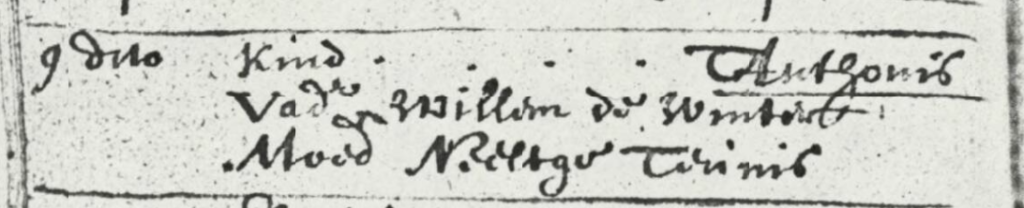 9 dito Kind . . . . Anthonis
Vadr Willem de Winter
Moed Neeltge Teunis